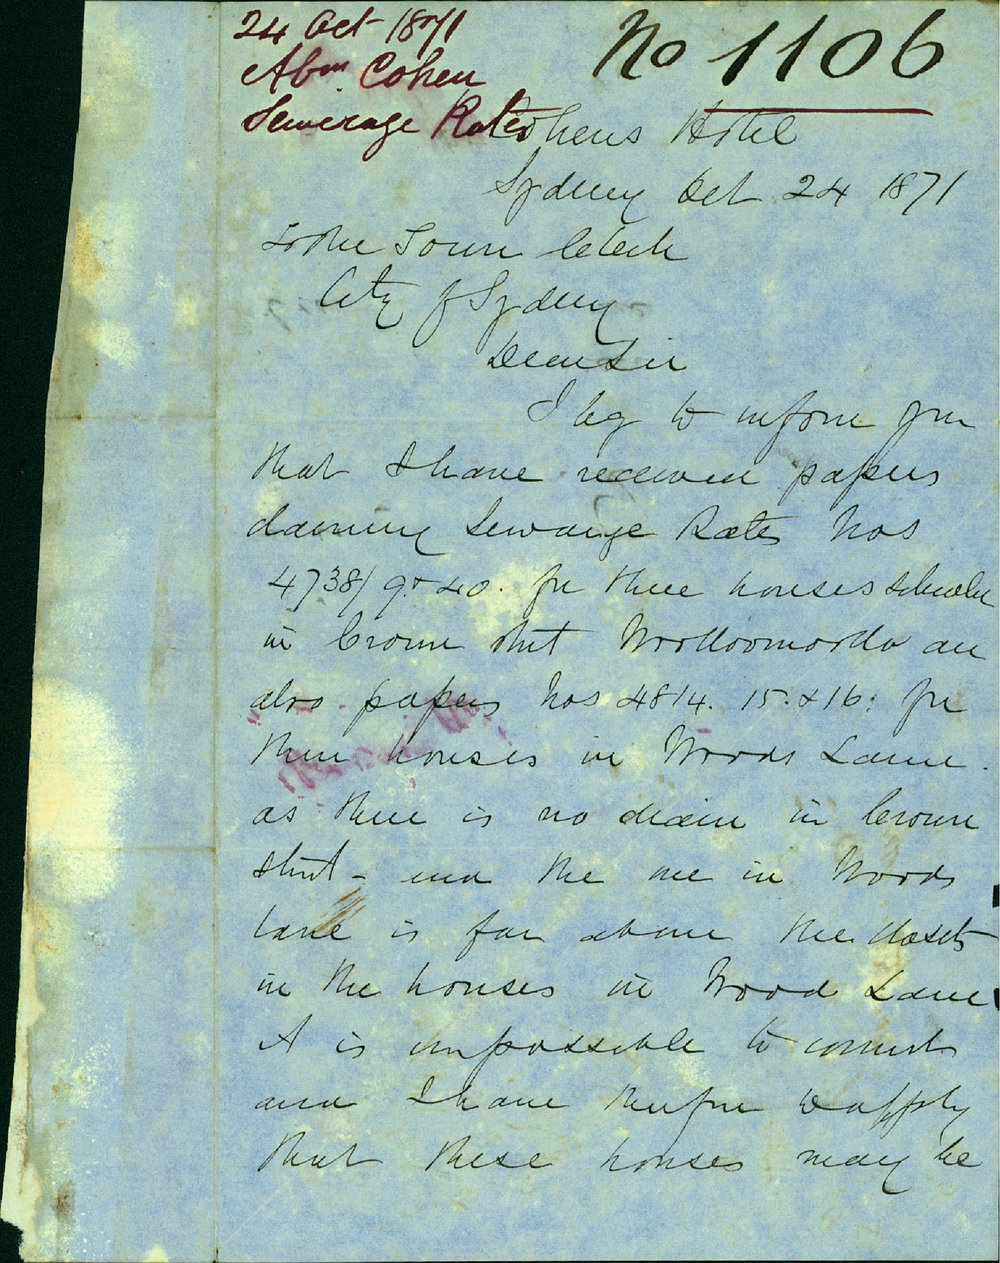 24 Oct 1871
Abm Cohen
Sewerage Rates
No 1106
Cohens Hotel
Sydney Oct 24 1871
To the Town Clerk
City of Sydney
Dear Sir
I beg to inform you
that I have received papers
claiming Sewarage Rates Nos
4738/9 & 40. for three houses situate
in Crown street Woolloomoolloo and
also papers Nos 4814. 15. & 16. for
three houses in Woods Lane.
as there is no drain in Crown
street - and the one in Woods
Lane is far above the closets
in the houses in Wood Lane
it is impossible to connect
and I have therefore to apply
that these houses may be